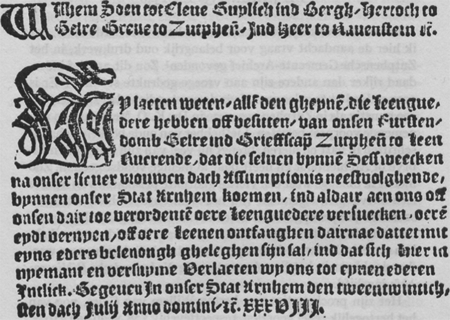 Wilhem Soen tot Cleue Guylich ind Bergh, Hertoch to
Gelre Greue to Zutpheñ. Ind Heer to Rauenstein ꝛc̃.
Wy laeten weten, allē den gheynē, die Leengue/
dere hebben off besitten, van onsen Fursten/
domb Gelre ind Grieffscap Zutpheñ to Leen
Ruerende, dat die seluen bynneñ Sess weecken
na onser lieuer vrouwen dach Assumptionis neestvolghende,
bynnen onser Stat Arnhem koemen, ind aldair aen ons off
onsen dair toe verordentē oere Leenguedere versuecken, oerē
eydt vernyen, off oere Leenen ontfanghen dairnae dattet mit
eyns eders belenongh gheleghen sijn sal, ind dat sich hier in
nyemant en versuyme Verlaeten wy ons tot eynen ederen
Intlick. Gegeuen In onser Stat Arnhem den tweentwintich/
sten dach Julij Anno domini ꝛc̃. XXXVIII.